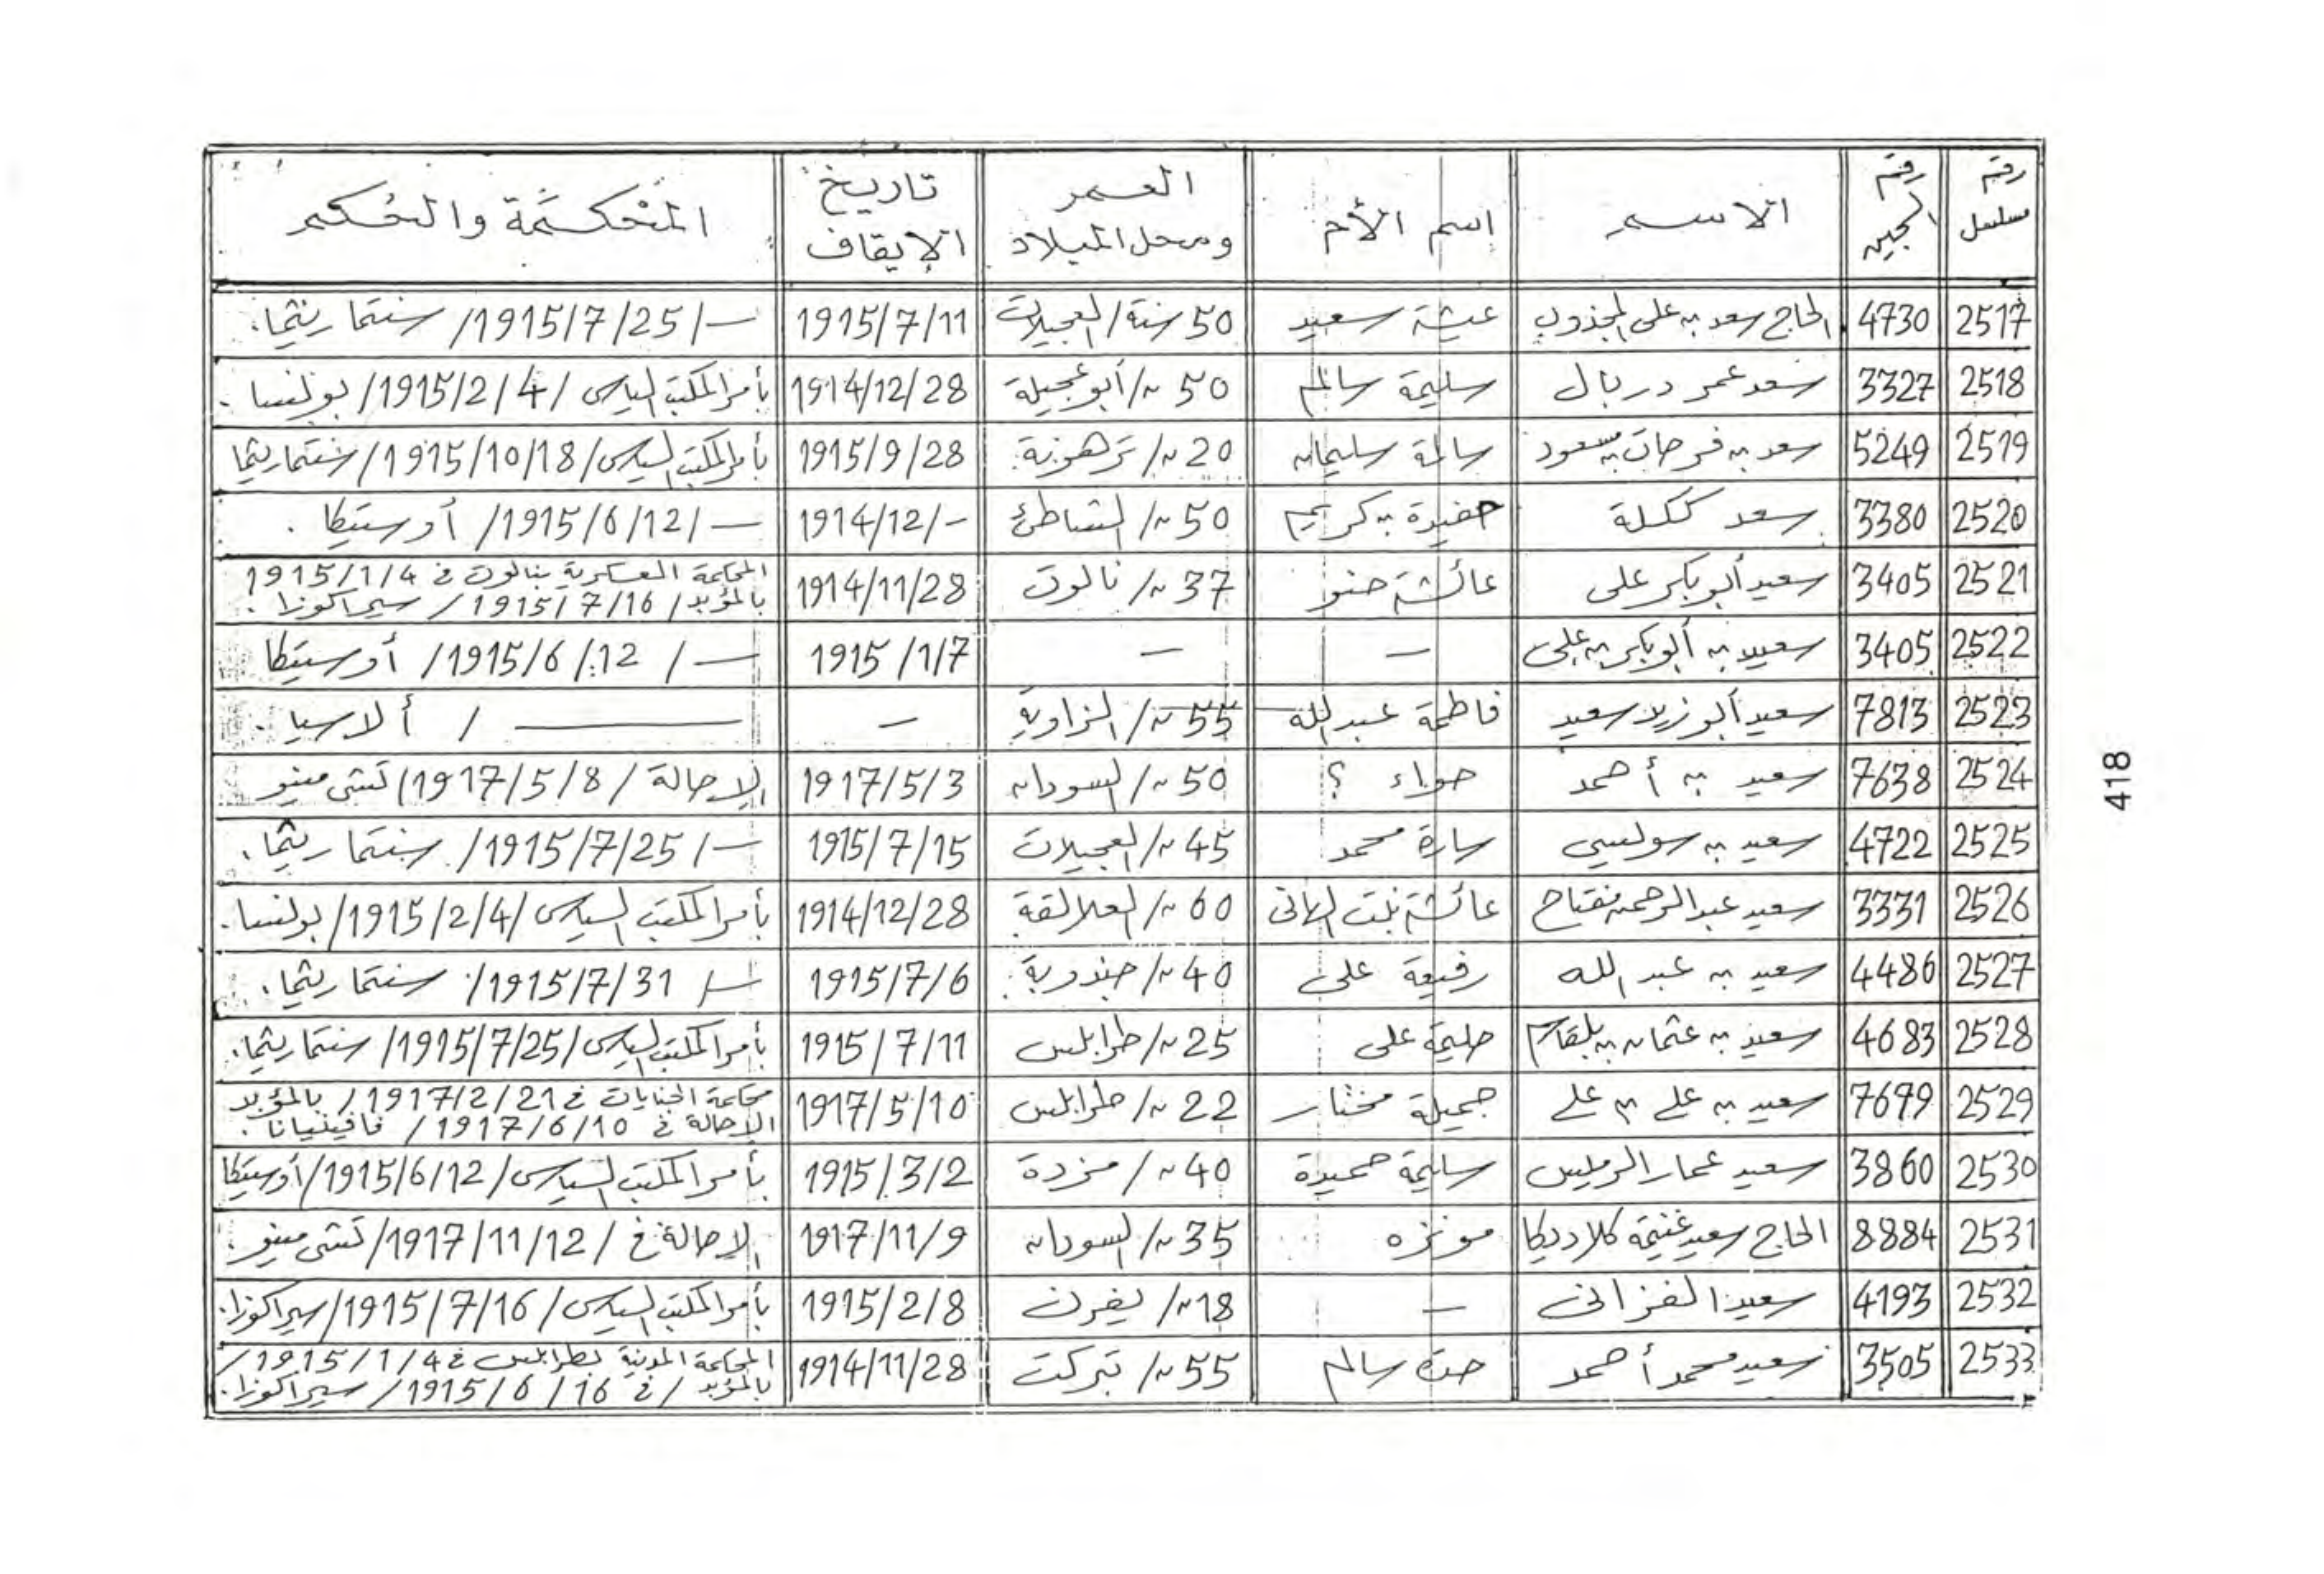 رقم مسلسل | رقم السجين | الاسم | اسم الأم | العمر ومحل الميلاد | تاريخ الإيقاف | المحكمة والحكم
2517 | 4730 | الحاج سعد بن على المجذوب | عيشة سعيد | 50 سنة/ العجيلات | 1915/7/11 | —/1915/7/25/ سنتما ريثما.
2518 | 3327 | سعد عمر دربال | سليمة سالم | 50 //~ أبو عجيلة | 1914/12/28 | بأمر المكتب السياسى /1915/2/4/ بولنسا.
2519 | 5249 | سعد بن فرحات بن مسعود | سالمة سليمان | 20 ~/ ترهونة | 1915/9/28 | بأمر المكتب السياسى/1915/10/18/ سنتما ريثما
2520 | 3380 | سعد ككلة | حفيدة بن كريم | 50 ~/ الشاطئ | 1914/12/- | —/1915/6/12/ أوستيكا.
2521 | 3405 | سعيد أبو بكر على | عائشة حنو | 37 ~/ نالوت | 1914/11/28 | المحكمة العسكرية بنالوت فى 1915/1/4
بالمؤبد/ 1915/7/16/ سيراكوزا.
2522 | 3405 | سعيد بن أبو بكر بن على | — | — | 1915/1/7 | —/ 1915/6/12/ أوستيكا
2523 | 7813 | سعيد أبو زيد سعيد | فاطمة عبد الله | 55 ~/ الزاوية | — | —— / ألاسيا.
2524 | 7638 | سعيد بن أحمد | حواء ؟ | 50 ~/ السودان | 1917/5/3 | الإحالة / 1917/5/8/ تشى مينو
2525 | 4722 | سعيد بن سولسيى | سارة محمد | 45 ~/ العجيلات | 1915/7/15 | —/1915/7/25/ سنتما ريثما.
2526 | 3331 | سعيد عبد الرحمن مفتاح | عائشة بنت الهانى | 60 ~/ العلالقة | 1914/12/28 | بأمر المكتب السياسى /1915/2/4/ بولنسا.
2527 | 4486 | سعيد بن عبد الله | رفيعة على | 40 ~/ جندوبة | 1915/7/6 | —/ 1915/7/31/ سنتما ريثما.
2528 | 4683 | سعيد بن عثمان بن بلقاسم | حليمة على | 25 ~/ طرابلس | 1915/7/11 | بأمر المكتب السياسى/1915/7/25/ سنتما ريثما.
2529 | 7699 | سعيد بن على بن على | جميلة مختار | 22 ~/ طرابلس | 1917/5/10 | محكمة الجنايات فى 1917/2/21/ بالمؤبد
الإحالة فى 1917/6/10/ فافينيانا.
2530 | 3860 | سعيد عمار الرميس | سليمة حميدة | 40 ~/ مزدة | 1915/3/2 | بأمر المكتب السياسى/1915/6/12/ أوستيكا
2531 | 8884 | الحاج سعيد غنيمة كلادديكا | مونزه | 35 ~/ السودان | 1917/11/9 | الإحالة فى /1917/11/12/ تشى مينو.
2532 | 4193 | سعيد الفزانى | — | 18 ~/ يفرن | 1915/2/8 | بأمر المكتب السياسى/1915/7/16/ سيراكوزا.
2533 | 3505 | سعيد محمد أحمد | حدة سالم | 55 ~/ تبركت | 1914/11/28 | المحكمة المدنية بطرابلس فى 1915/1/4/
بالمؤبد/ فى 1915/6/16/ سيراكوزا.
418